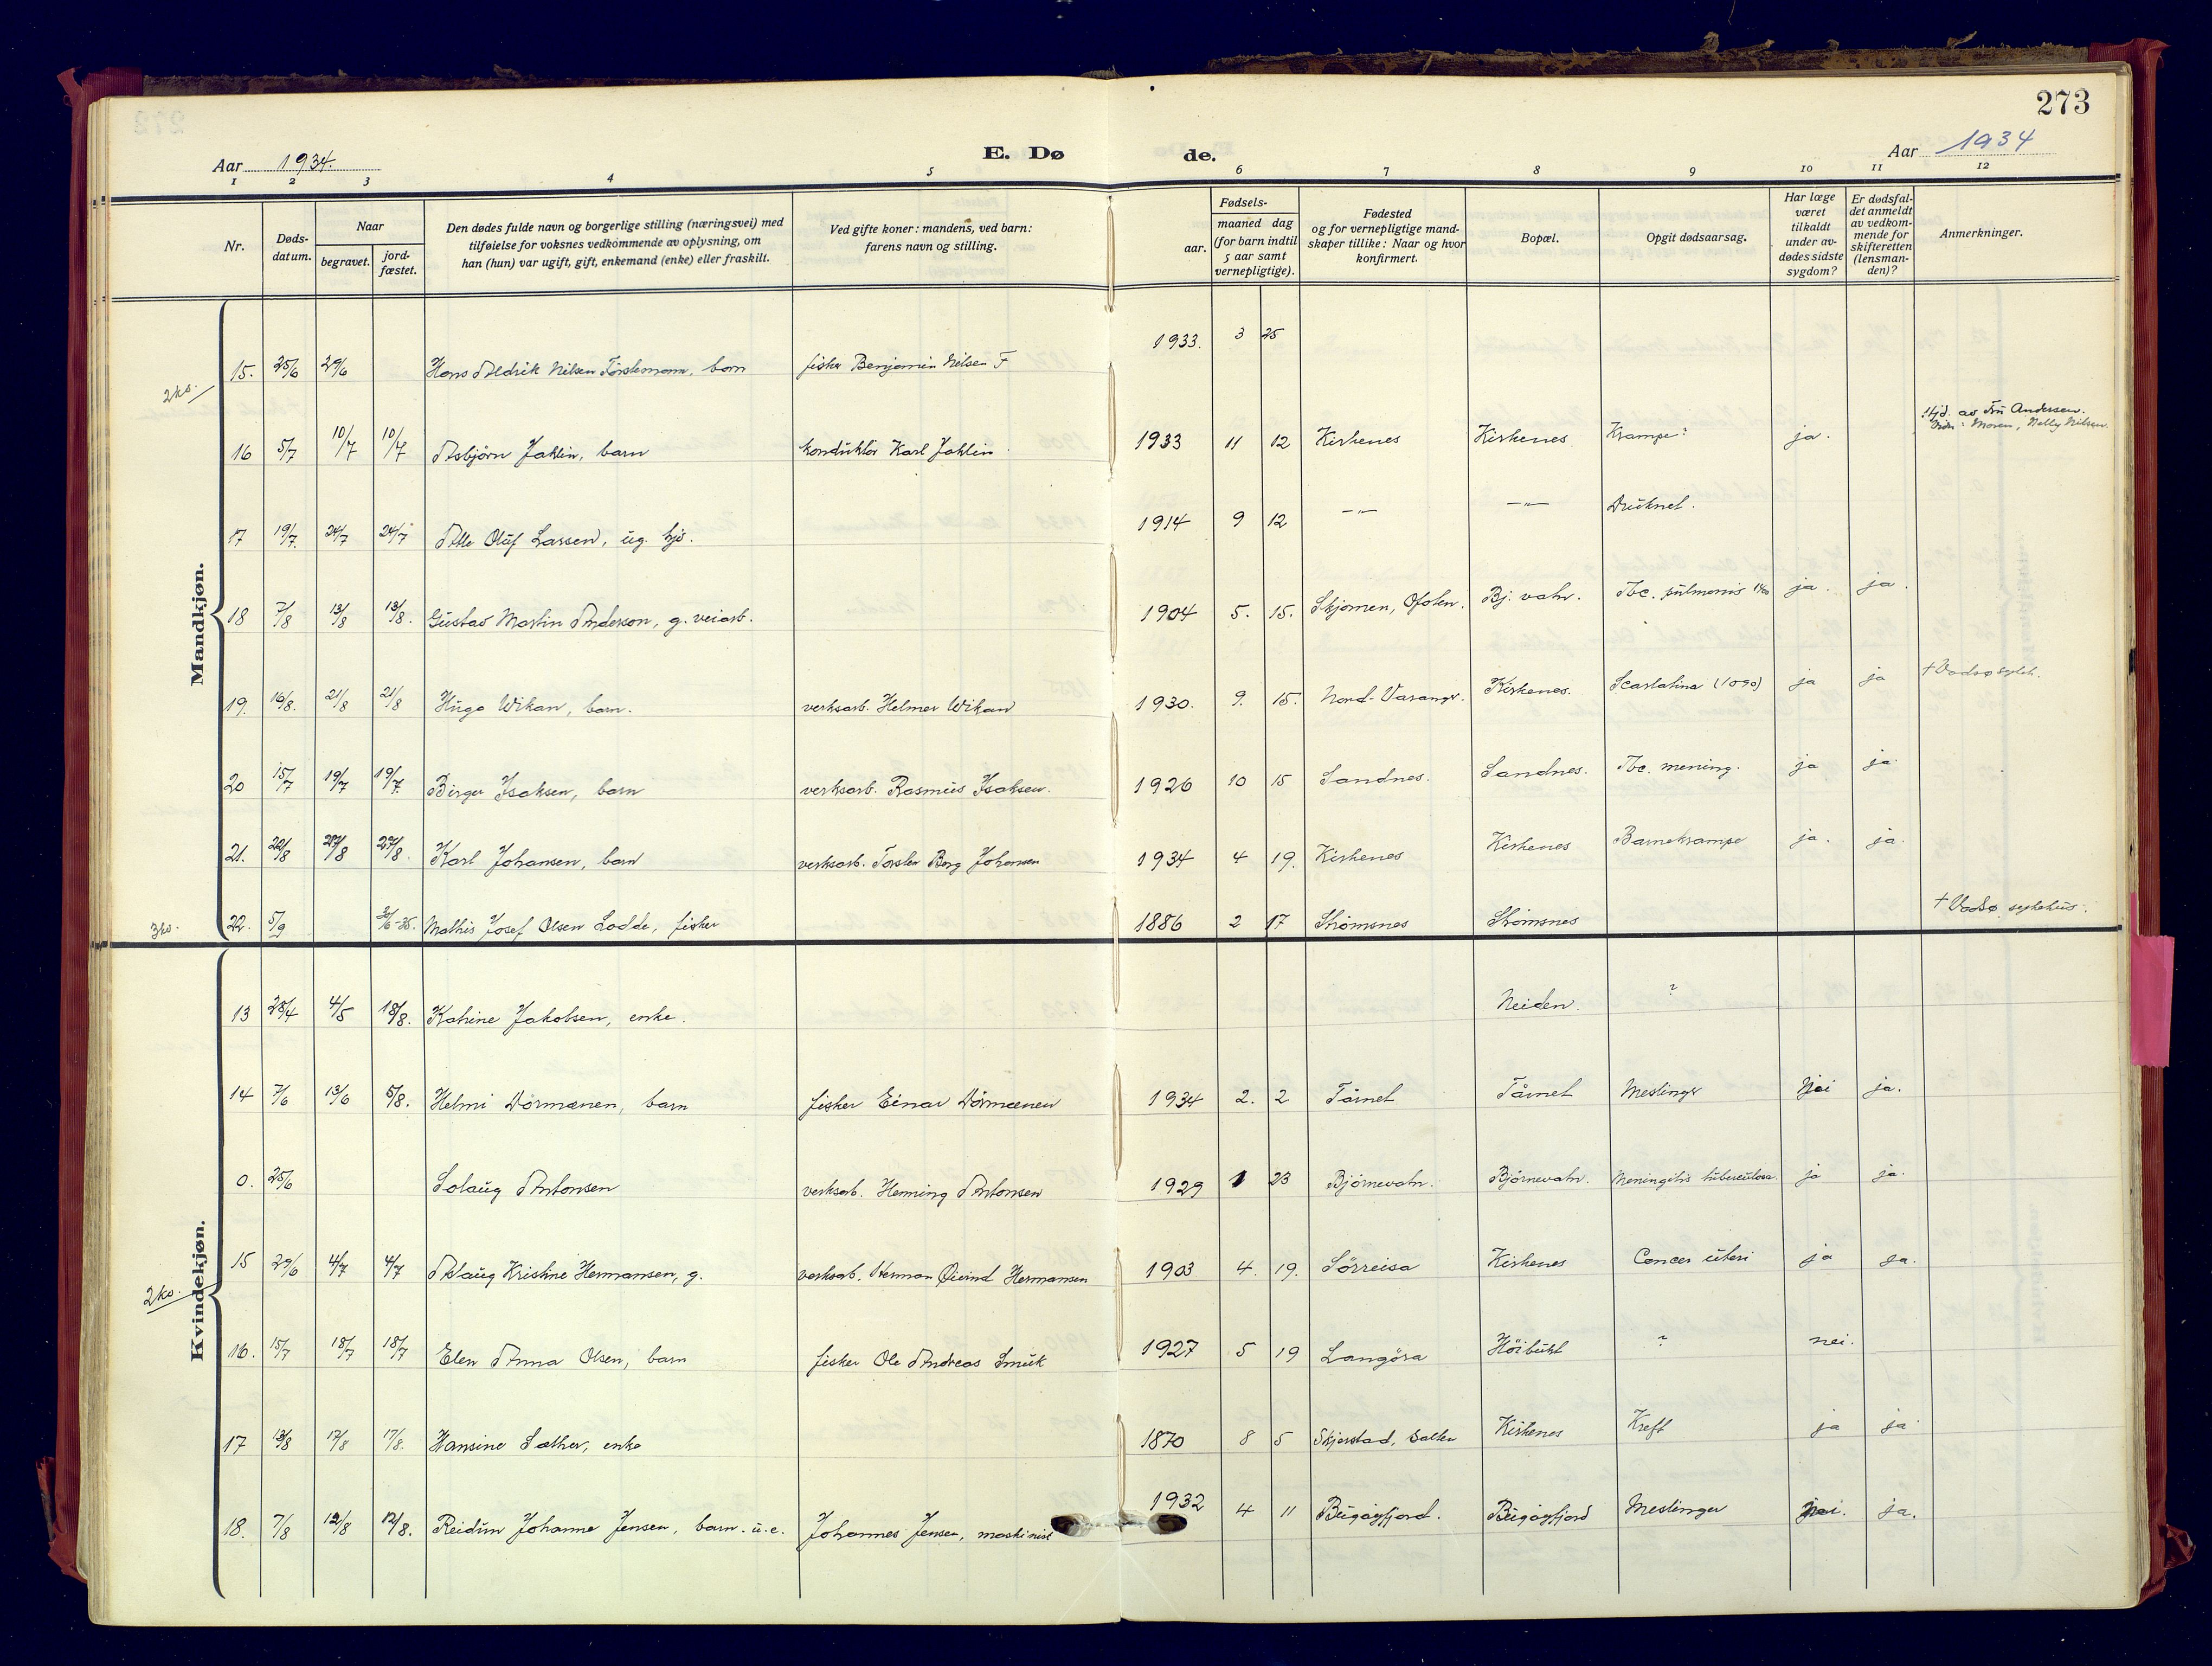 273
Aar 1934.
E. Dø
de.
Aar 1934
1 2 3 4 5 6 7 8 9 10 11 12
Nr.
Døds-
datum.
Naar
begravet.
jord-
fæstet.
Den dødes fulde navn og borgerlige stilling (næringsvei) med
tilføielse for voksnes vedkommende av oplysning, om
han (hun) var ugift, gift, enkemand (enke) eller fraskilt.
Ved gifte koner: mandens, ved barn:
farens navn og stilling.
Fødsels-
aar.
maaned dag
(for barn indtil
5 aar samt
vernepligtige).
Fødested
og for vernepligtige mand-
skaper tillike: Naar og hvor
konfirmert.
Bopæl.
Opgit dødsaarsag.
Har læge
været
tilkaldt
under av-
dødes sidste
sygdom?
Er dødsfal-
det anmeldt
av vedkom-
mende for
skifteretten
(lensman-
den)?
Anmerkninger.
Mandkjøn.
2 ks.
15. 25/6 29/6 Hans Aldrik Nilsen, barn fisker Benjamin Nilsen F 1933. 3 25
Hjd. av Fru Andersen.
Moren, Nelly Nilsen.
16 5/7 10/7 10/7 Asbjörn Jaklin, barn konduktör Karl Jaklin 1933 11 12 Kirkenes Kirkenes Krampe? ja.
17 19/7. 24/7 24/7 Atle Oluf Larsen, ug. 1914 9 12 —"— —"— Druknet.
18 7/8 13/8 13/8. Gustav Martin Anderson, g. veiarb. 1904 5. 15. Skjomen, Ofoten. Bj. vatn. Tbc. pulmonis ja. ja.
19. 16/8. 21/8 21/8 Hugo Wikan, barn. verksarb. Helmer Wikan 1930. 9. 15. Nord-Varanger. Kirkenes. Scarlatina (1090) ja ja + Vadsø sykeh.
20 15/7 19/7 19/7. Birger Isaksen, barn verksarb. Rasmus Isaksen. 1926 10 15 Sandnes. Sandnes. Tbc. mening. ja ja.
21. 22/8 27/8 27/8. Karl Johansen, barn verksarb. Torsten Berg Johansen 1934 4 19. Kirkenes Kirkenes Barnekrampe ja. ja.
3 ks.
22. 5/9 30/6-35. Mathis Josef Olsen Lodde, fisker 1886 2 17 Strömsnes Strömsnes + Vadsø sykehus.
Kvindekjøn.
13 28/4 4/5 18/8. Katrine Jakobsen, enke. Neiden. ?
14 7/6 13/6 5/8. Helmi Dörmænen, barn fisker Einar Dörmænen 1934 2. 2 Tårnet Tårnet Meslinger Nei ja.
0. 25/6 Solaug Antonsen verksarb. Henning Antonsen 1929 1 23 Björnevatn. Björnevatn. Meningitis tuberculosa. ja ja.
2 ks.
15 29/6 4/7 4/7 Aslaug Kristine Hermansen, g. verksarb. Herman Øivind Hermansen 1903 4. 19. Sörreisa Kirkenes Cancer uteri ja ja.
16. 15/7 18/7 18/7 Elen Anna Olsen, barn fisker Ole Andreas Smuk 1927 5 19 Langöra Höibukt ? nei.
17 13/8 17/8 17/8. Hansine Sæther, enke 1870 8 5 Skjerstad, Salten Kirkenes Kreft ja ja.
18. 7/8 12/8 12/8. Reidun Johanne Jensen, barn. u.e. Johannes Jensen, maskinist 1932 4 11 Bugöyfjord. Bugöyfjord Meslinger nei. ja.